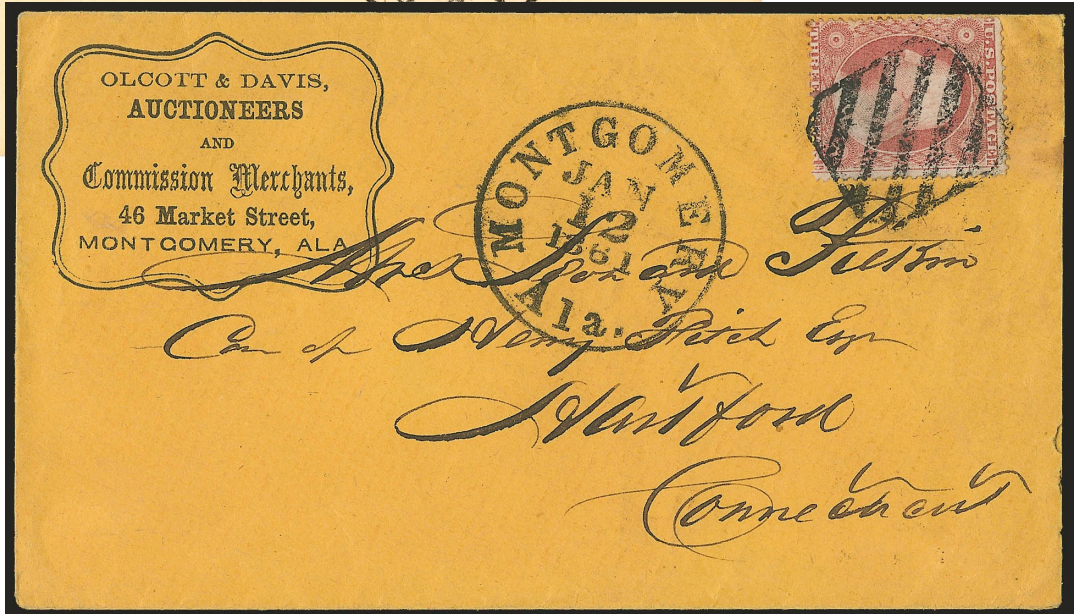 OLCOTT & DAVIS,
AUCTIONEERS
AND
Commission Merchants,
46 Market Street,
MONTGOMERY, ALA
MONTGOMERY
JAN
12
1861
Ala.
THREE
U.S. POSTAGE
Mrs
Care of Henry Fitch Esqr
Hartford
Connecticut